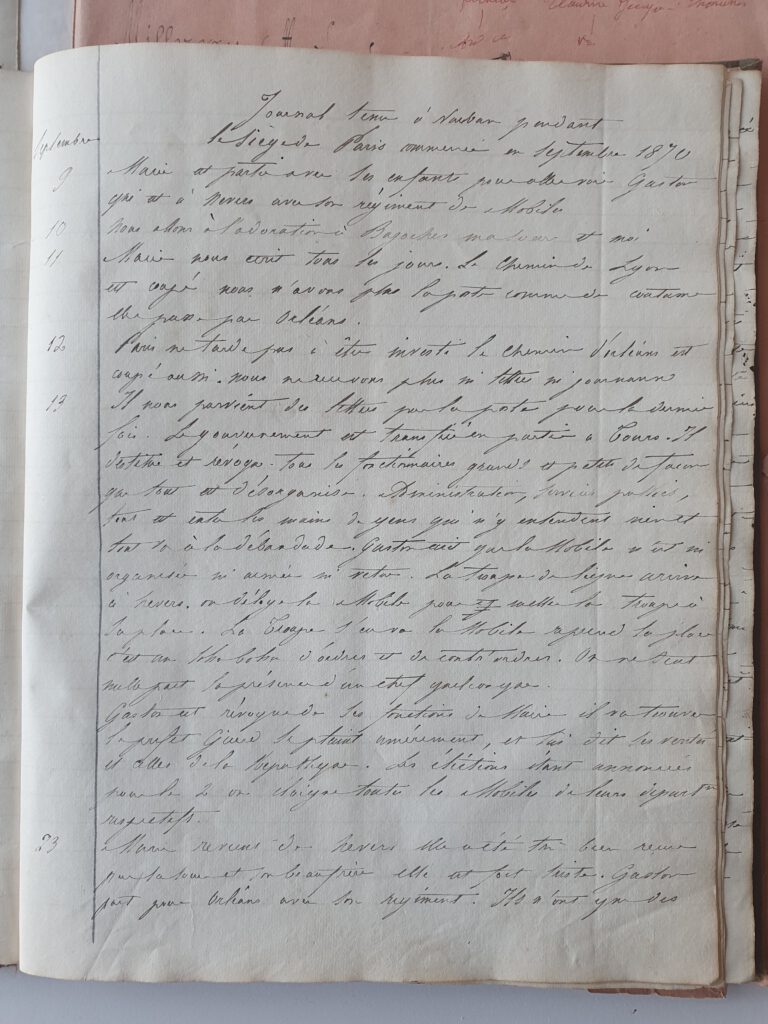 Journal tenu à Vauban pendant
le Siège de Paris commencé en Septembre 1870
Septembre
9 Marie est partie avec ses enfants pour aller voir Gaston
qui est à Nevers avec son régiment de Mobiles
10 Nous allons à l'adoration à Bazoches ma sœur et moi
11 Marie nous écrit tous les jours. Le Chemin de Lyon
est coupé nous n'avons plus la poste comme de coutume
elle passe par Orléans.
12 Paris ne tarde pas à être investi le Chemin d'Orléans est
coupé aussi. nous ne recevons plus ni lettres ni journaux
13 Il nous parvient des lettres par la poste pour la dernière
fois. Le gouvernement est transféré en partie à Tours. Il
destitue et révoque tous les fonctionnaires grands et petits de façon
que tout est désorganisé. Administration, services publics,
tout est entre les mains de gens qui n'y entendent rien et
tout va à la débandade. Gaston écrit que la Mobile n'est ni
organisée ni armée ni vêtue. La troupe de ligne arrive
à Nevers. on déloge la Mobile pour y mettre la troupe à
la place. La troupe s'en va la Mobile reprend la place
c'est un d'ordres et de contr'ordres. On ne sent
nulle part la présence d'un chef quelconque.
Gaston est révoqué de ses fonctions de Maire il va trouver
le préfet se plaint amèrement, et lui dit ses vérités
et celles de la République. Les élections étant annoncées
pour le 2 on éloigne toutes les Mobiles de leurs départ
respectifs.
23 Marie revient de Nevers elle a été très bien reçue
par la sœur et son beau frère elle est fort triste. Gaston
part pour Orléans avec son régiment. Ils n'ont que des